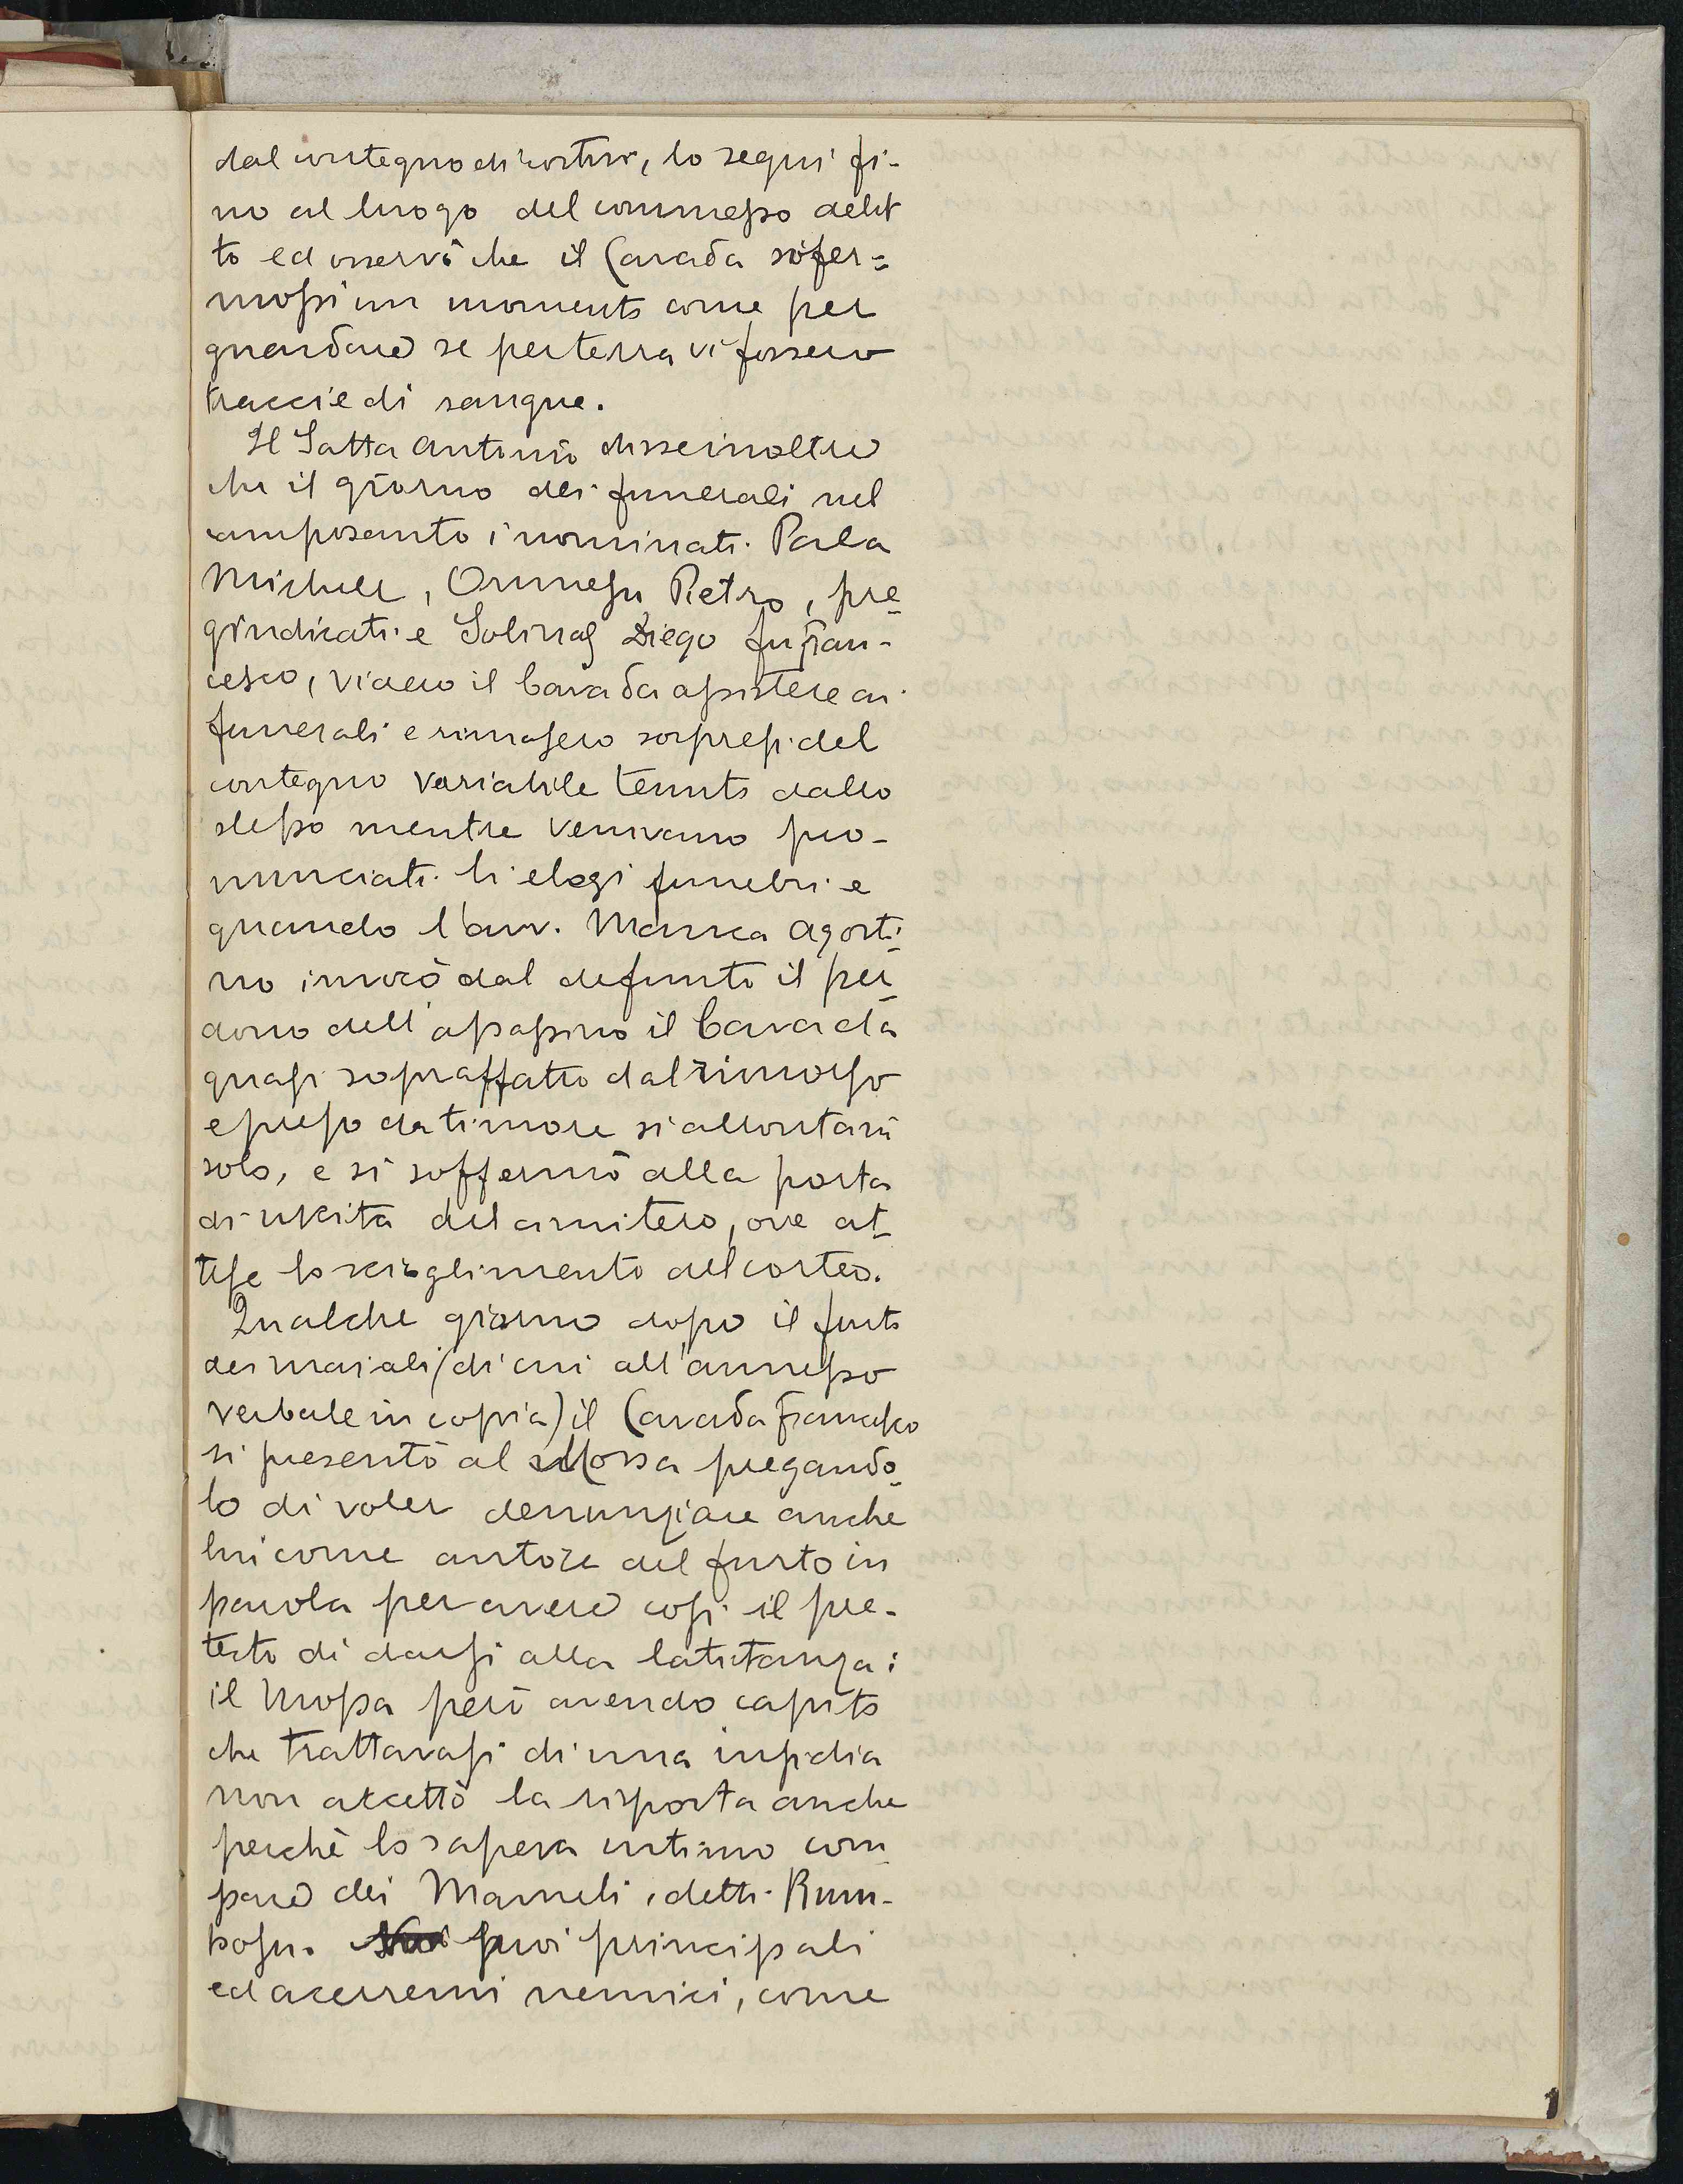 dal contegno di costui, lo seguì fi-
no al luogo del commesso delit
to ed osservò che il Cavada sofer=
mossi un momento come per
guardare se per terra vi fossero
traccie di sangue.
Il Satta Antonio disse inoltre
che il giorno dei funerali nel
camposanto i nominati Pala
Michele, Orunesu Pietro, pre
giudicati e Solinas Diego fu Fran-
cesco, videro il Cavada assistere ai
funerali e rimasero sorpresi del
contegno variabile tenuto dallo
stesso mentre venivano pro-
nunciati li elogi funebri e
quando l'avv. Manca Agosti
no invocò dal defunto il per
dono dell'assassino il Cavada
quasi sopraffatto dal rimorso
e preso da timore si allontanò
solo, e si soffermò alla porta
di uscita del cimitero, ove at
tese lo scioglimento del corteo.
Qualche giorno dopo il furto
dei maiali (di cui all'annesso
verbale in copia) il Cavada Francesco
si presentò al Mossa pregando
lo di voler denunziare anche
lui come autore del furto in
parola per avere così il pre-
testo di darsi alla latitanza:
il Mossa però avendo capito
che trattavasi di una insidia
non accettò la risposta anche
perchè lo sapeva intimo com
pare dei Mameli, detti Rum-
bosu. suoi principali
ed acerremi nemici, come